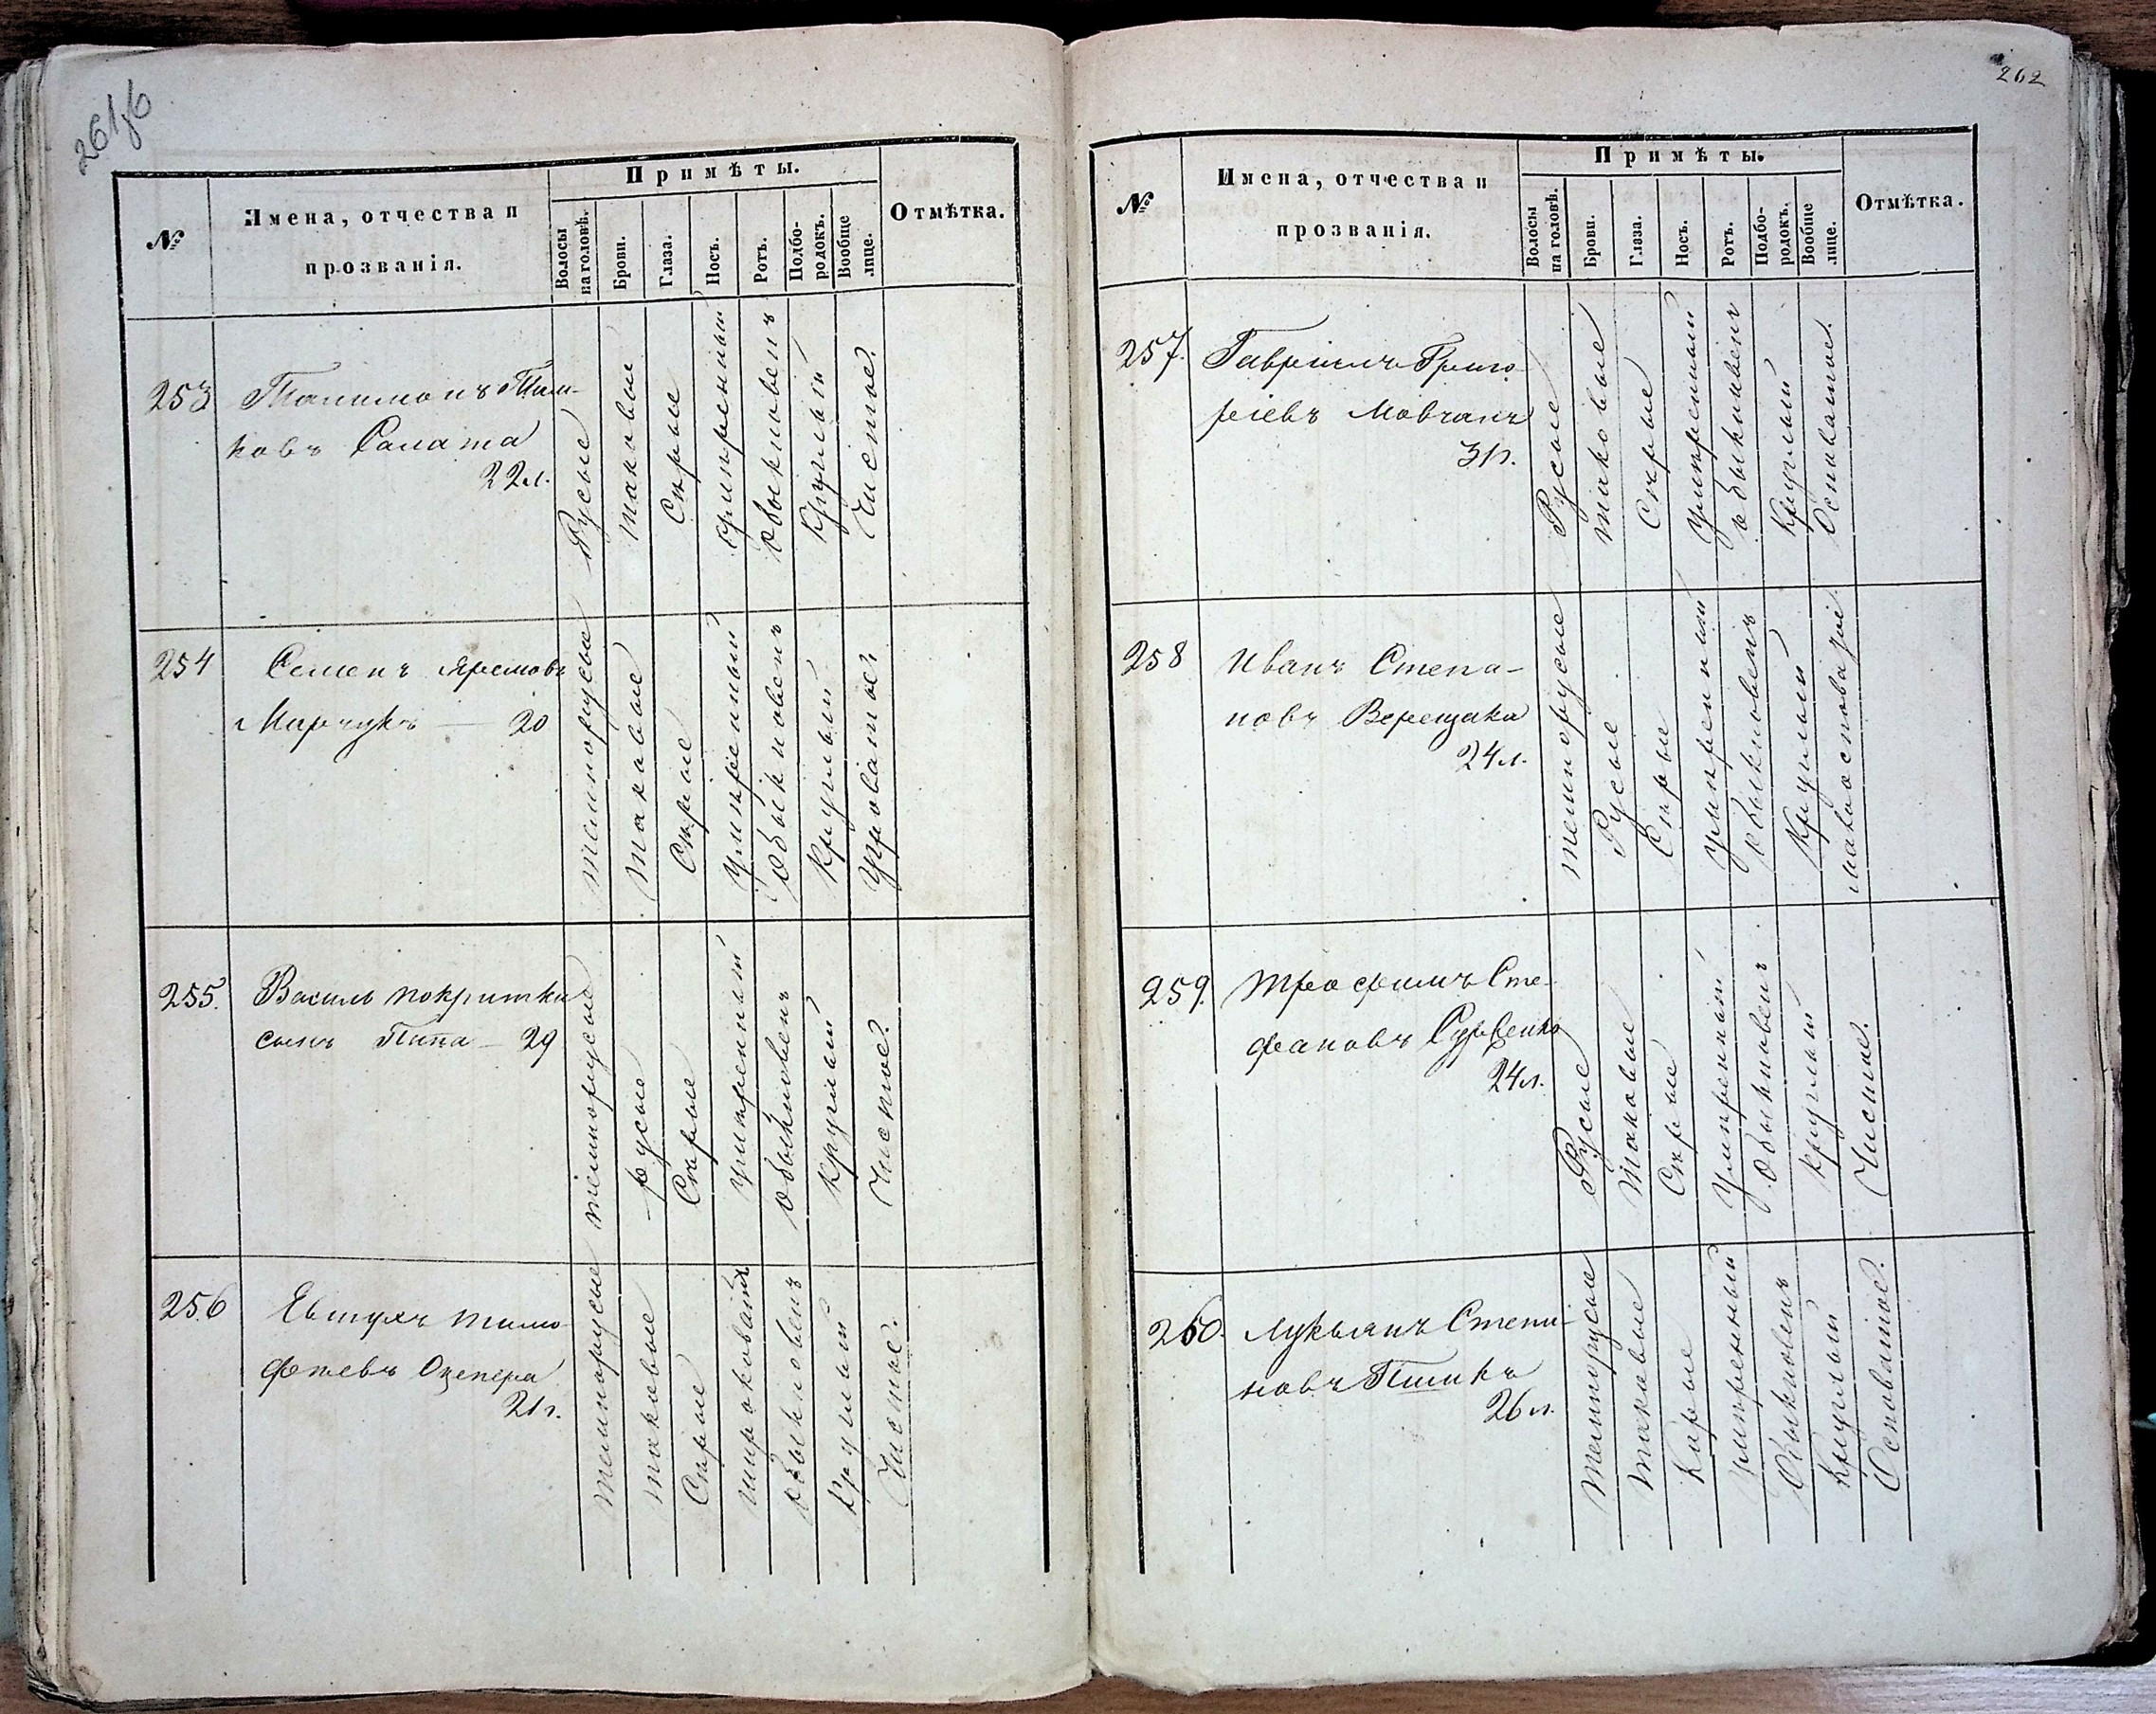 261об
№
Имена, отчества и
прозванія.
Примѣты.
Волосы
на головѣ.
Брови.
Глаза.
Носъ.
Ротъ.
Подбо-
родокъ.
Вообще
лице.
Отмѣтка.
253
ковъ Салата
22 л.
Русые
таковые
Сѣрые
обыкновенъ
Круглый
Чистое.
254
Семенъ Яремовъ
Марчукъ — 20
темнорусые
таковые
Сѣрые
Умѣренный
Обыкновенъ
круглый
Угроватое
255.
Василь покритки
сынъ Пипа — 29
темнорусые
русые
Сѣрые
умѣренный
обыкновенъ
круглый
Чистое.
256
Евтухъ Тимо-
фѣевъ
21 г.
темнорусые
таковые
Сѣрые
широковатъ
обыкновенъ
круглый
Чистое.
262
№
Имена, отчества и
прозванія.
Примѣты.
Волосы
на головѣ.
Брови.
Глаза.
Носъ.
Ротъ.
Подбо-
родокъ.
Вообще
лице.
Отмѣтка.
257.
Гавріилъ Григо
ріевъ Мовчанъ
31 г.
Русые
таковые
Сѣрые
Умѣренный
обыкновенъ
Круглый
Оспиватое.
258
Иванъ Степа-
новъ Верещака
24 л.
темнорусые
Русые
Сѣрые
Умѣренный
обыкновенъ
Круглый
259.
Трофимъ Сте-
фановъ
24 л.
Русые
таковые
Сѣрые
Умѣренный
обыкновенъ
круглый
Чистое.
260.
Лукьянъ Степа-
новъ
26 л.
темнорусые
таковые
Карые
умѣренный
Обыкновенъ
круглый
Осповатое.